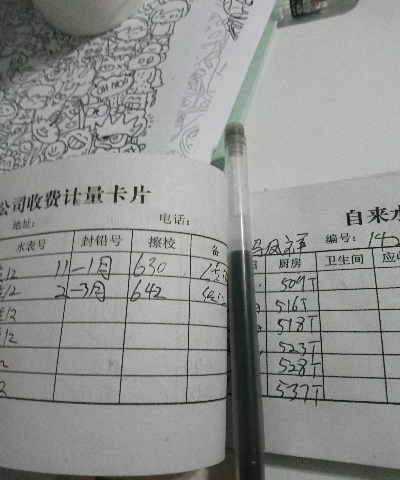 OH NO!
公司收费计量卡片
地址: 电话:
水表号 封铅号 擦校 备
/12 11-1月 630
/12 2-3月 642
/12
/12
2
2
自来水
编号: 142
厨房 卫生间 应
509T
516T
518T
523T
528T
537T